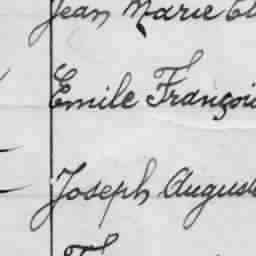 Jean Marie
Emile Françoi
Joseph August